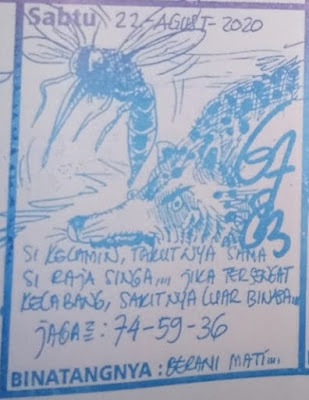 Sabtu 22-AGUST-2020
67
83
SI KECAMIN, TAKUTNYA SAMA
SI RAJA SINGA,,,, JIKA TERSENGAT
KECABANG, SAKITNYA LUAR BINASA...
JAGA²: 74-59-36
BINATANGNYA : BERANI MATI....